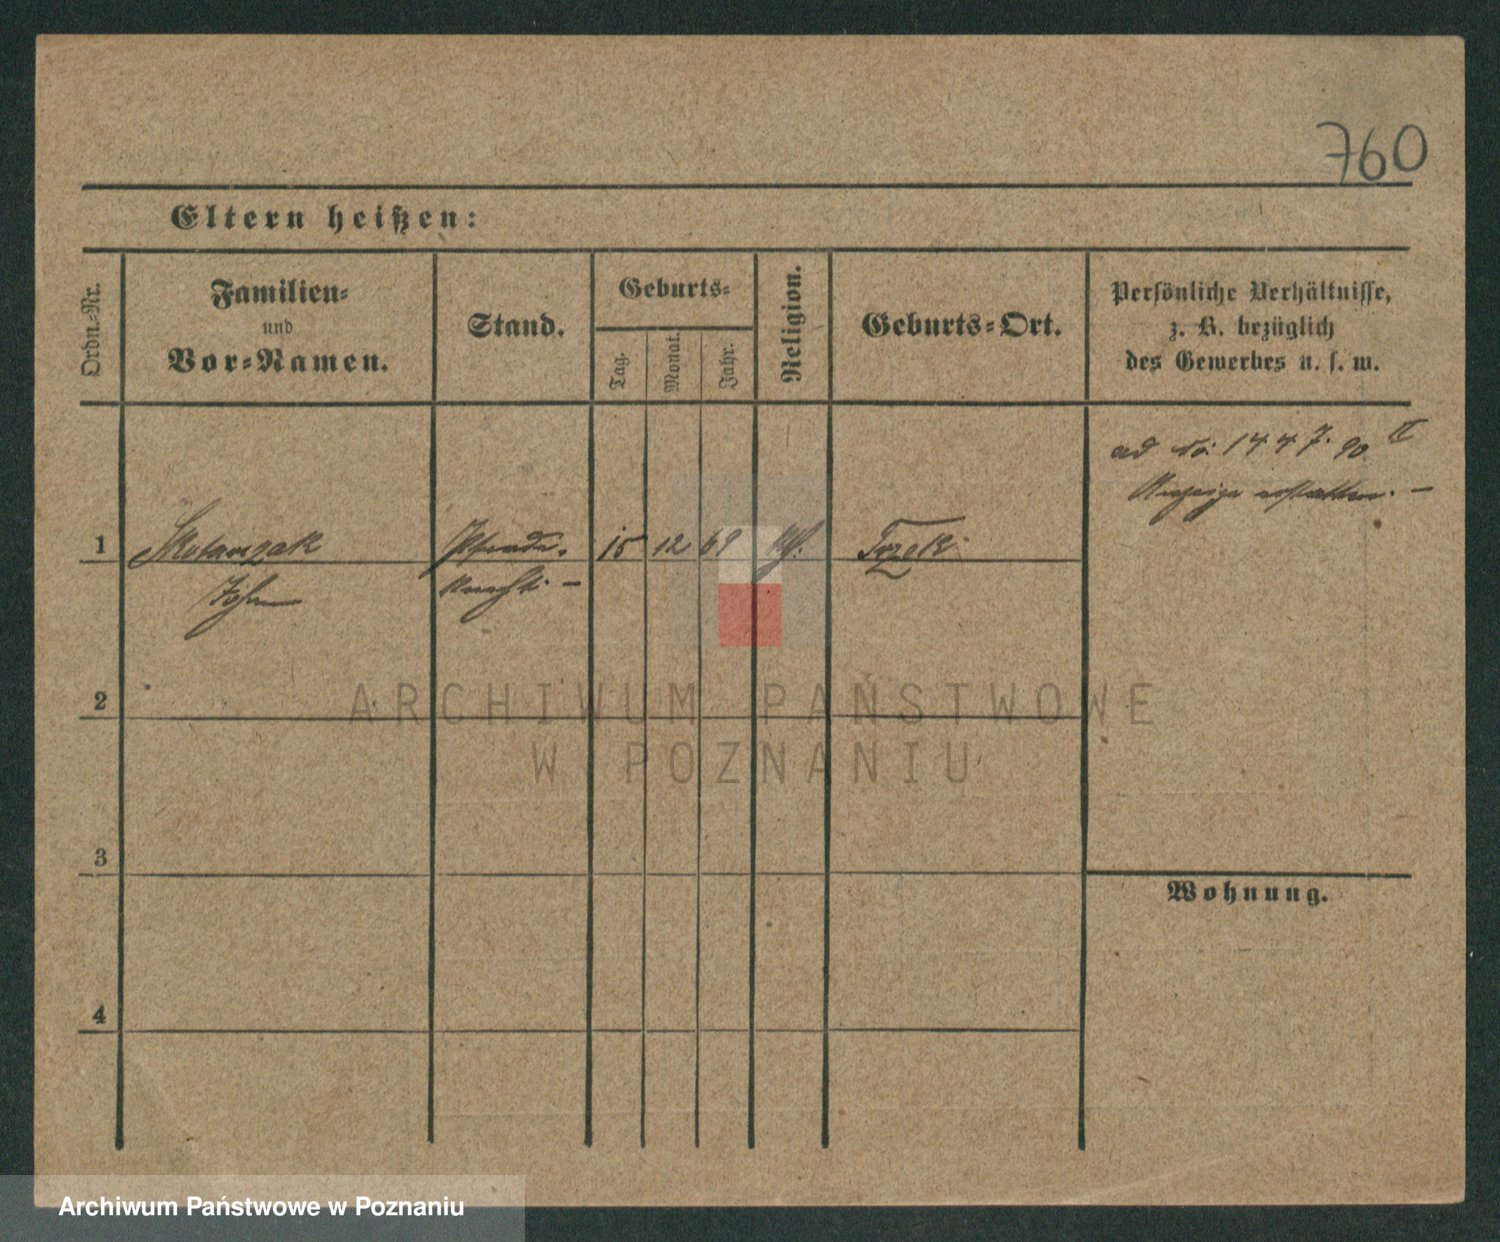 760
Eltern heißen:
Ordn.-Nr.
Familien-
und
Vor-Namen.
Stand.
Geburts-
Tag.
Monat.
Jahr.
Religion.
Geburts-Ort.
Persönliche Verhältnisse,
z. B. bezüglich
des Gewerbes u. s. w.
ad No. 1447. 90 II
Anzeige erstatten. –
1 Skotarczak Pferde- 15 12 69 kth.
knecht. –
2
ARCHIWUM PAŃSTWOWE
W POZNANIU
3
Wohnung.
4
Archiwum Państwowe w Poznaniu